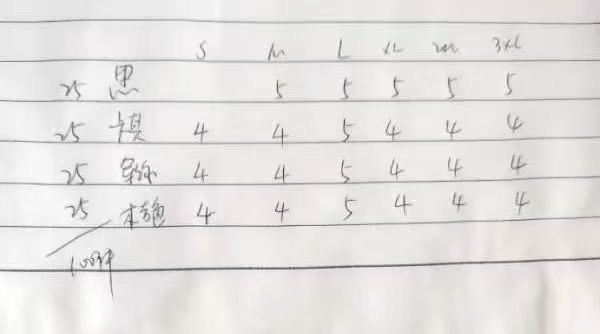 S M L XL 3XL
25 黑 5 5 5 5 5
25 卡其 4 4 5 4 4 4
25 4 4 5 4 4 4
25 4 4 5 4 4 4
100件